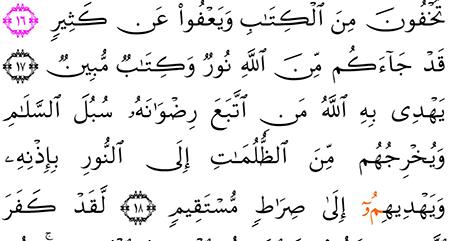 تُخْفُونَ مِنَ ٱلْكِتَٰبِ وَيَعْفُواْ عَن كَثِيرٍ ١٦
قَدْ جَآءَكُم مِّنَ ٱللَّهِ نُورٌ وَكِتَٰبٌ مُّبِينٌ ١٧
يَهْدِي بِهِ ٱللَّهُ مَنِ ٱتَّبَعَ رِضْوَٰنَهُۥ سُبُلَ ٱلسَّلَٰمِ
وَيُخْرِجُهُم مِّنَ ٱلظُّلُمَٰتِ إِلَى ٱلنُّورِ بِإِذْنِهِۦ
وَيَهْدِيهِمُۥٓ إِلَىٰ صِرَٰطٍ مُّسْتَقِيمٍ ١٨ لَّقَدْ كَفَرَ